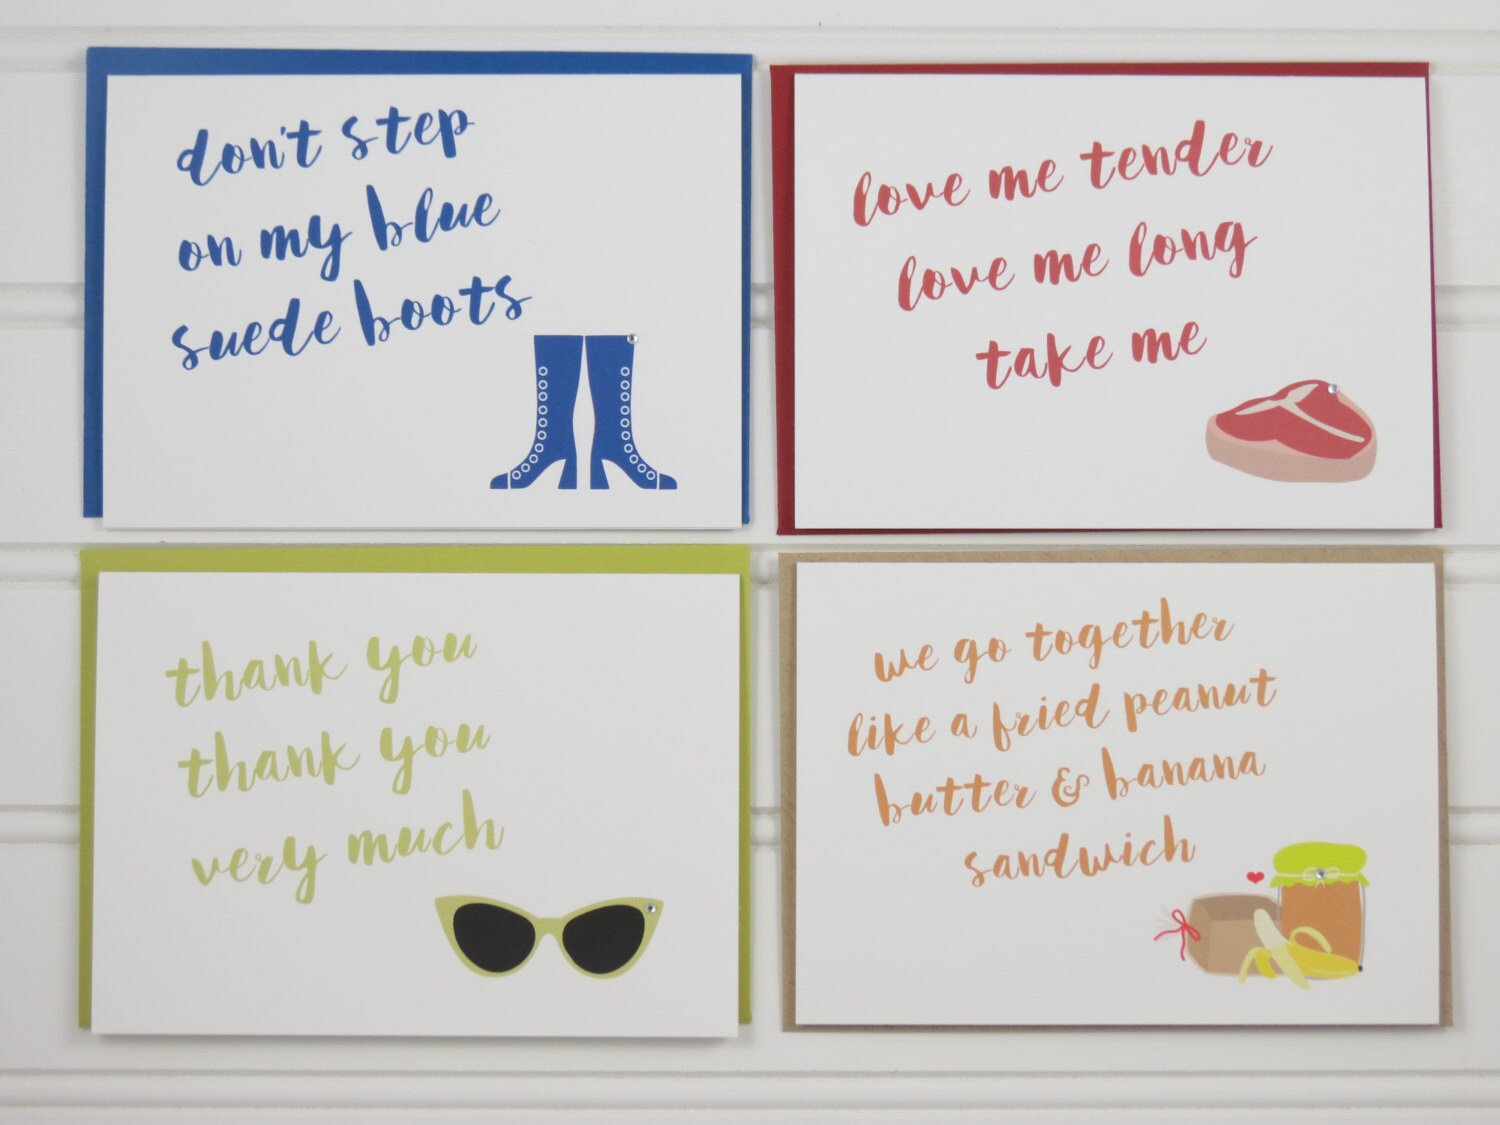 don't step
on my blue
suede boots
love me tender
love me long
take me
thank you
thank you
very much
we go together
like a fried peanut
butter & banana
sandwich